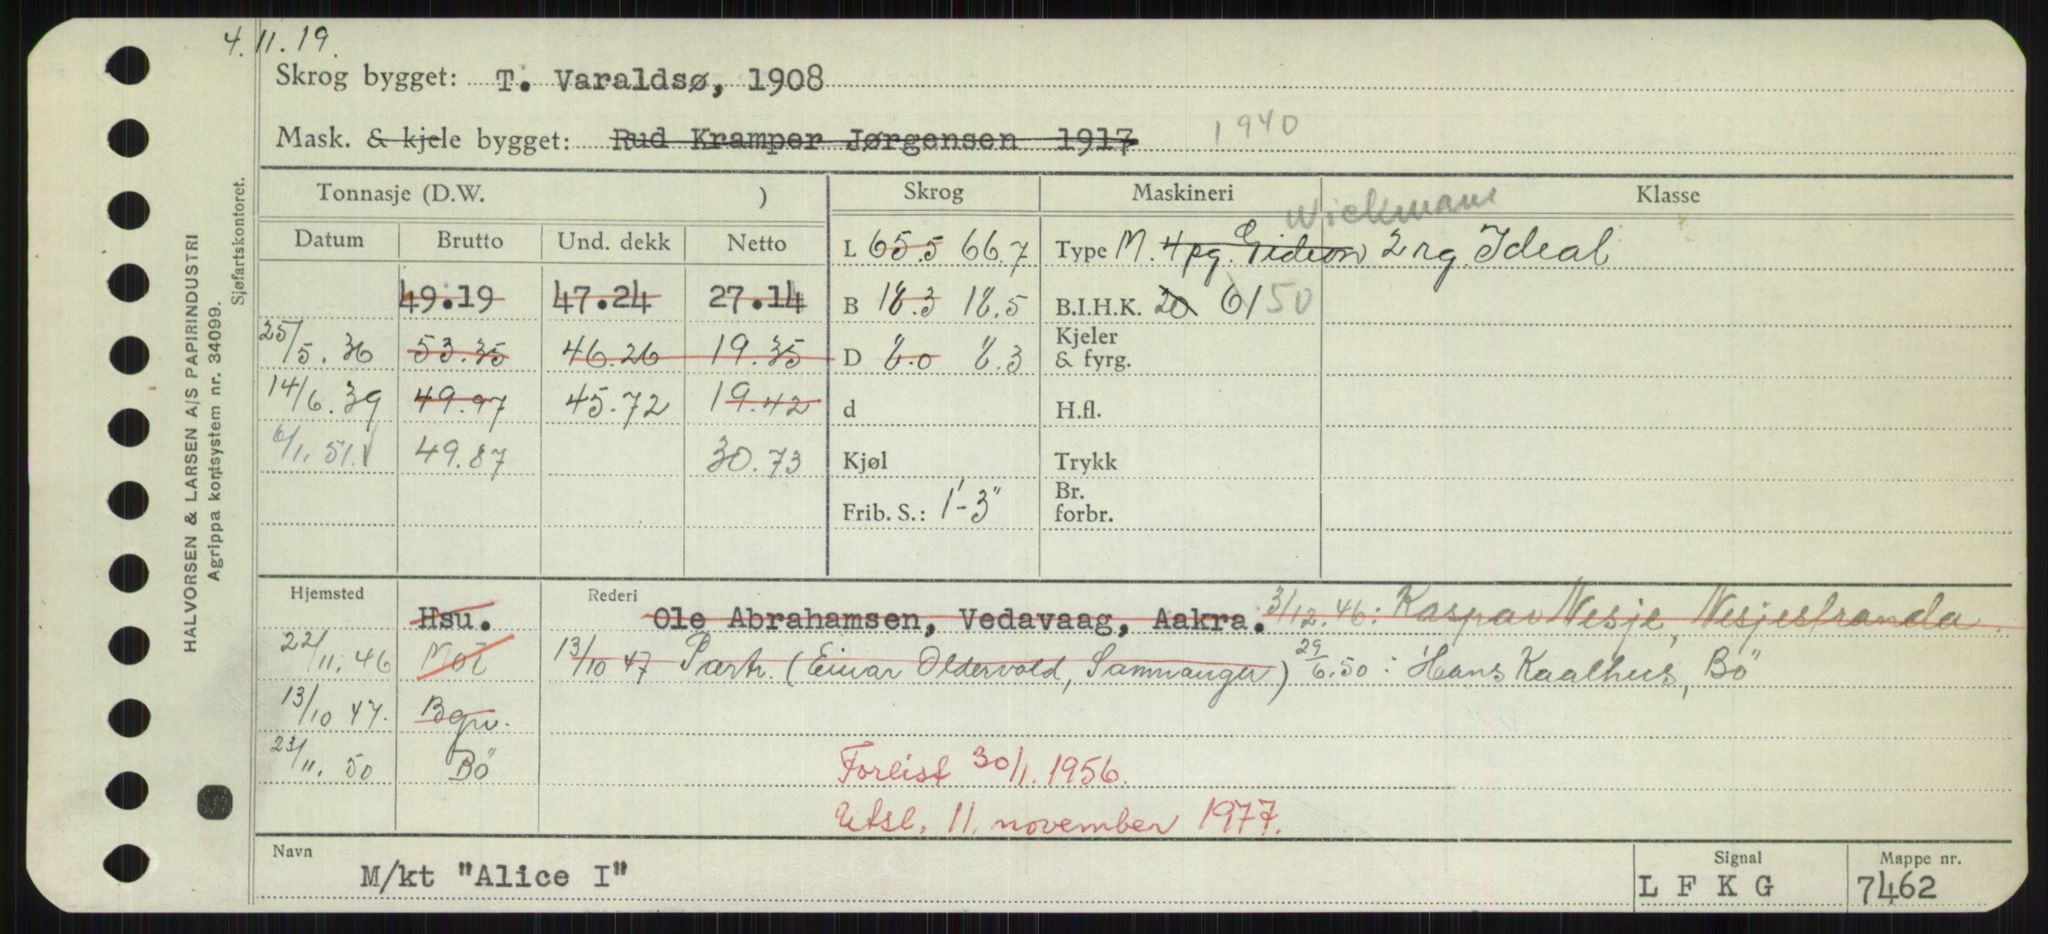 4.11.19.
Skrog bygget: T. Varaldsø, 1908
Mask. & kjele bygget: Rud Kramper Jørgensen 1917 1940
Tonnasje (D.W. ) Skrog Maskineri Klasse
Wickmann
Datum Brutto Und. dekk Netto L 65.5 66.7 Type M. 4pg. Gideon 2 rg. Ideal
49.19 47.24 27.14 B 18.3 18.5 B.I.H.K. 20 61 50
25/5.36 53.35 46.26 19.35 D 8.0 8.3 Kjeler & fyrg.
14/6.39 49.97 45.72 19.42 d H.fl.
6/1.51. 49.87 30.73 Kjøl Trykk
Frib. S.: 1'-3" Br. forbr.
Hjemsted Rederi
Hsu. Ole Abrahamsen, Vedavaag, Aakra. 3/12.46: Kaspar Nesje, Nesjestranda.
22/11.46 Mol 13/10 47 Partr. (Einar Oldervold, Samnanger) 29/6.50: Hans Kaalhus, Bö
13/10 47. Bgn.
23/11. 50 Bö Forlist 30/1.1956.
Utsl. 11. november 1977.
Navn Signal Mappe nr.
M/kt "Alice I" L F K G 7462
HALVORSEN & LARSEN A/S PAPIRINDUSTRI
Agrippa kortsystem nr. 34099.
Sjøfartskontoret.